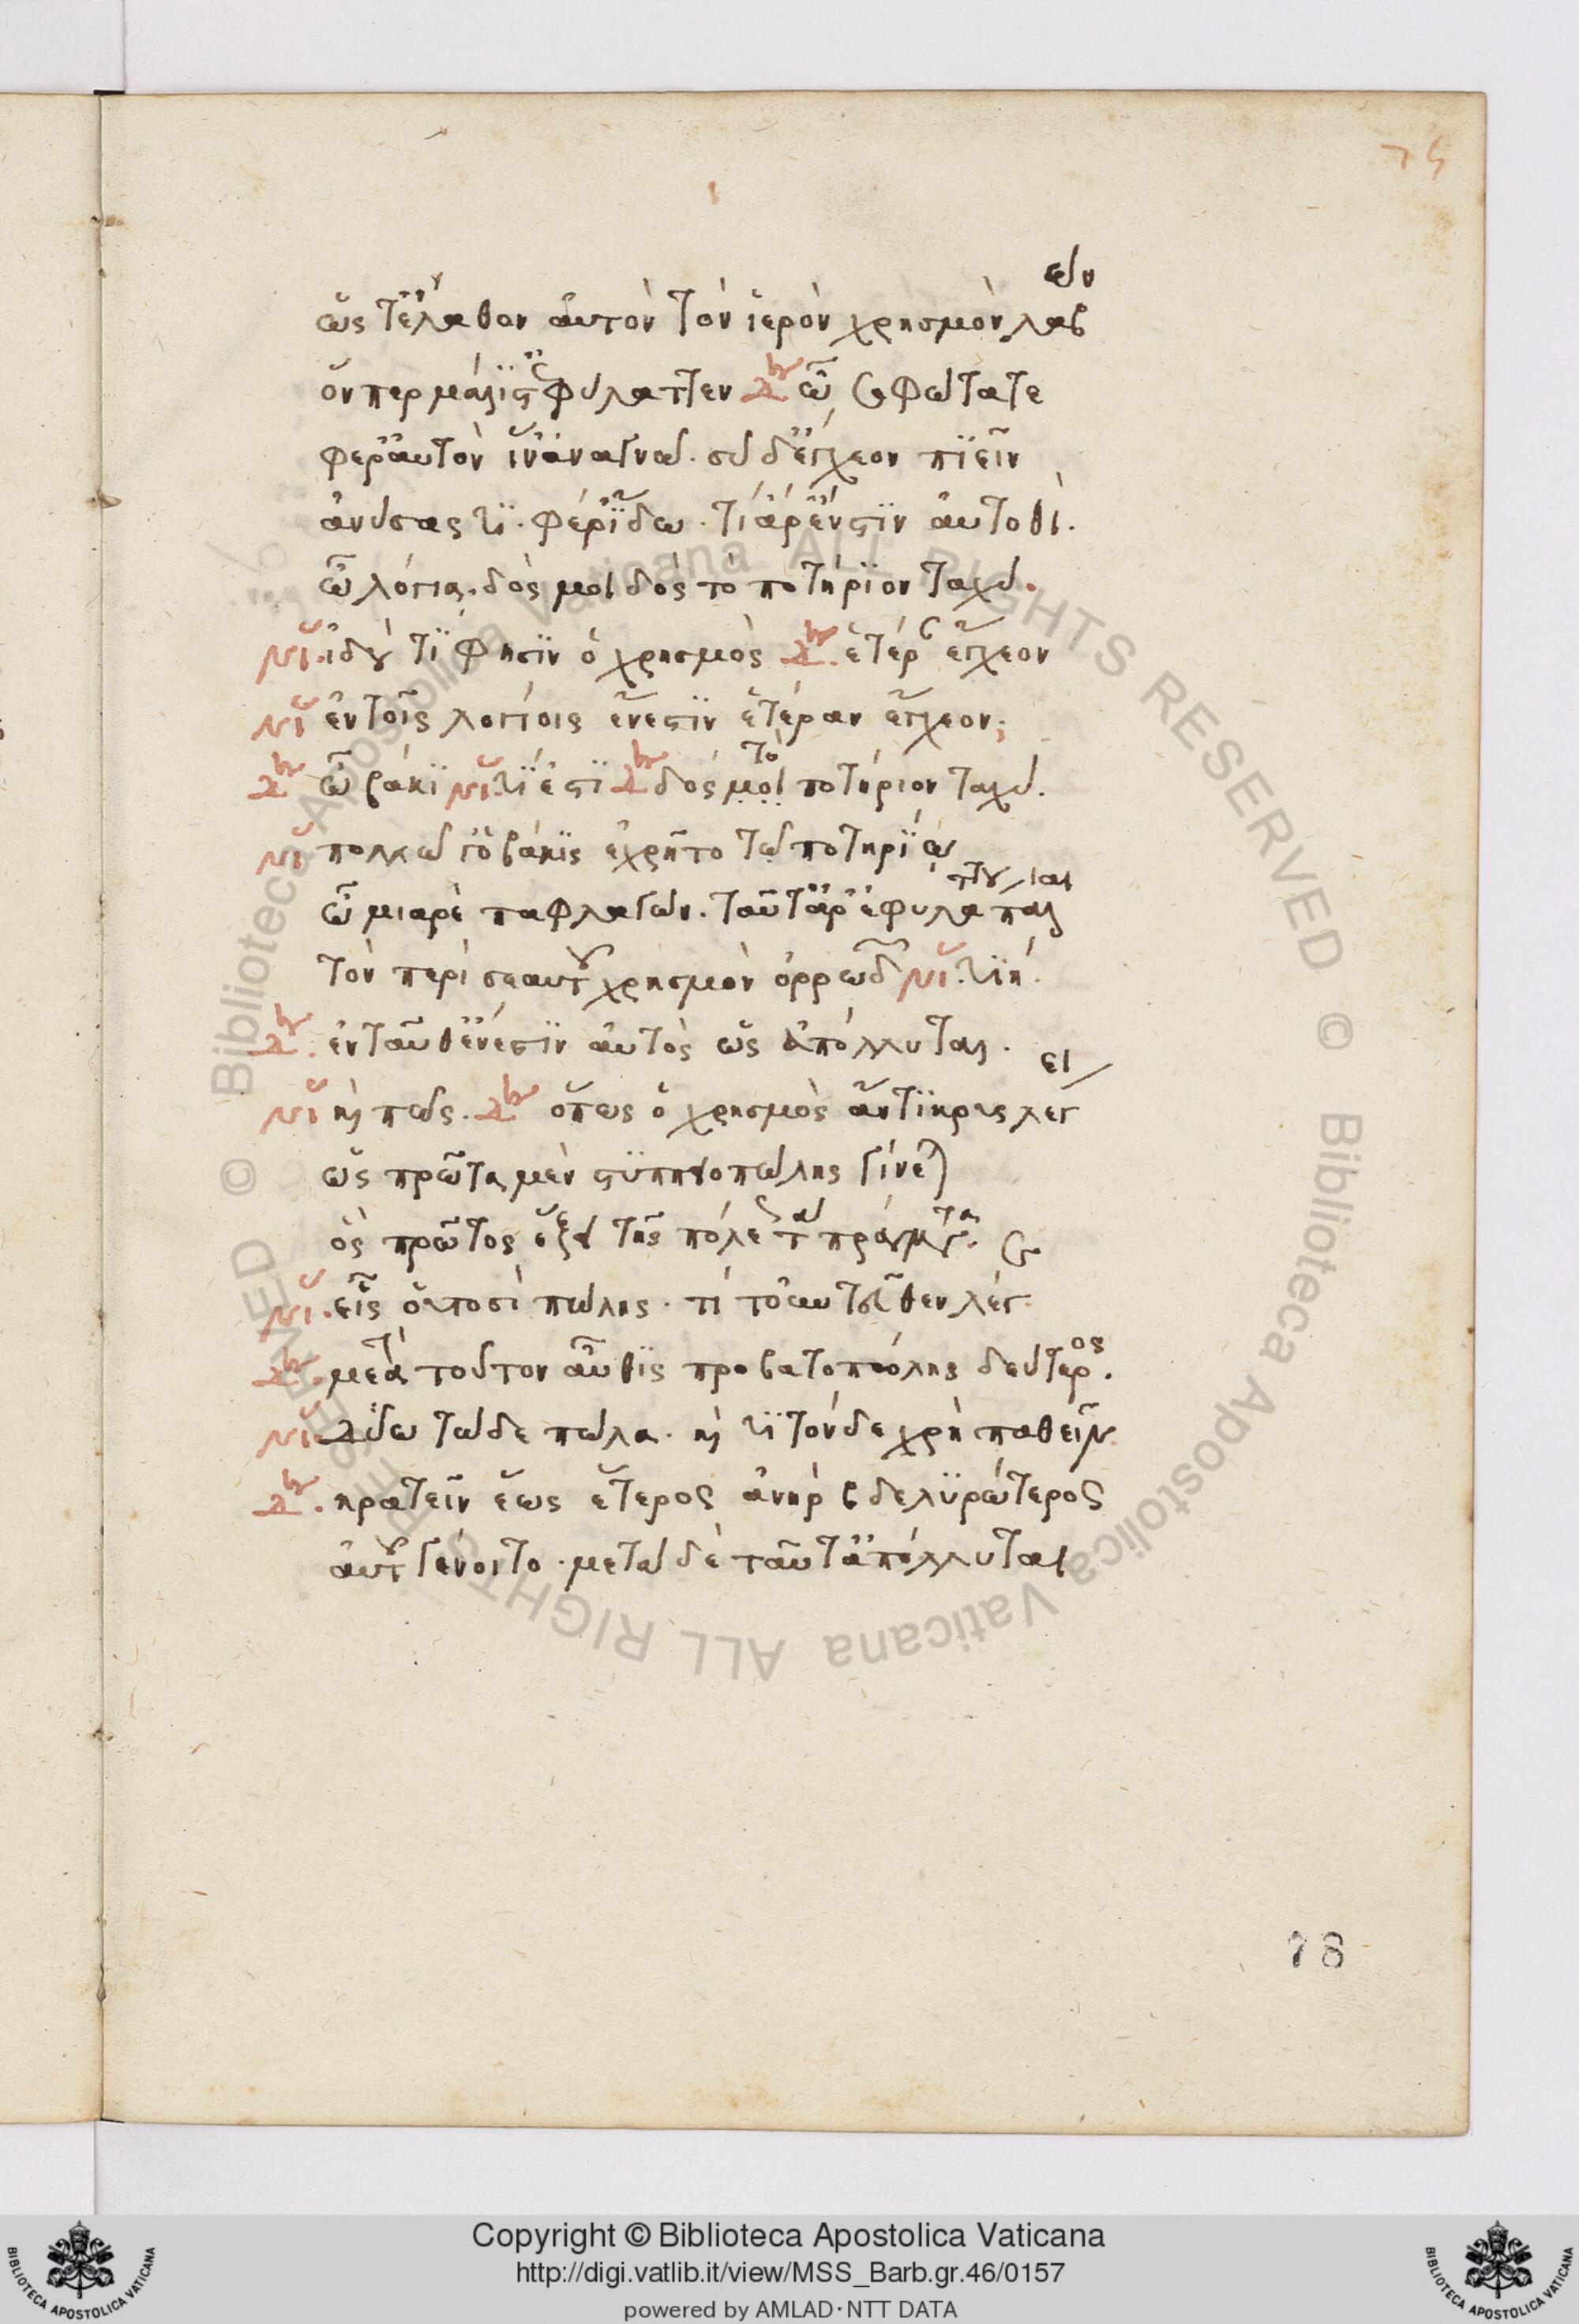 75
ὥς τ' ἔλαθον αὐτὸν τὸν ἱερὸν χρησμὸν λαβών
ὅνπερ μάλιστ' ἐφύλαττεν. Δη ὦ σοφώτατε
φέρ' αὐτὸν ἵν' ἀναγνῶ. σὺ δ' ἔγχεον πιεῖν
ἀνύσας τι. φέρ' ἴδω. τί ἄρ' ἔνεστιν αὐτόθι.
ὦ λόγια. δός μοι δὸς τὸ ποτήριον ταχύ.
Νι. ἰδού τί φησιν ὁ χρησμὸς Δη. ἑτέραν ἔγχεον
Νι ἐν τοῖς λογίοις ἔνεστιν ἑτέραν ἔγχεον;
Δη ὦ βάκι Νι. τί ἐστι Δη δός μοι τὸ ποτήριον ταχύ.
Νι πολλῷ γ' ὁ βάκις ἐχρῆτο τῷ ποτηρίῳ
ὦ μιαρὲ παφλαγών. ταῦτ' ἄρ' ἐφυλάττου πάλαι
τὸν περὶ σεαυτοῦ χρησμὸν ὀρρωδῶν Νι. τιή.
Δη. ἐνταῦθ' ἔνεστιν αὐτὸς ὡς ἀπόλλυται.
Νι καὶ πῶς. Δη ὅπως ὁ χρησμὸς ἄντικρυς λέγει
ὡς πρῶτα μὲν στυππειοπώλης γίνεται
ὃς πρῶτος ἕξει τῆς πόλεως τὰ πράγματα.
Νι. εἷς οὑτοσὶ πώλης. τί τοὐντεῦθεν λέγε.
Δη. μετὰ τοῦτον αὖθις προβατοπώλης δεύτερος.
Νι. δύω τώδε πώλα. καὶ τί τόνδε χρὴ παθεῖν.
Δη. κρατεῖν ἕως ἕτερος ἀνὴρ βδελυρώτερος
αὐτοῦ γένοιτο. μετὰ δὲ ταῦτ' ἀπόλλυται
78
© Biblioteca Apostolica Vaticana ALL RIGHTS RESERVED © Biblioteca Apostolica Vaticana ALL RIGHTS RESERVED
Copyright © Biblioteca Apostolica Vaticana
http://digi.vatlib.it/view/MSS_Barb.gr.46/0157
powered by AMLAD·NTT DATA
BIBLIOTECA APOSTOLICA VATICANA
BIBLIOTECA APOSTOLICA VATICANA